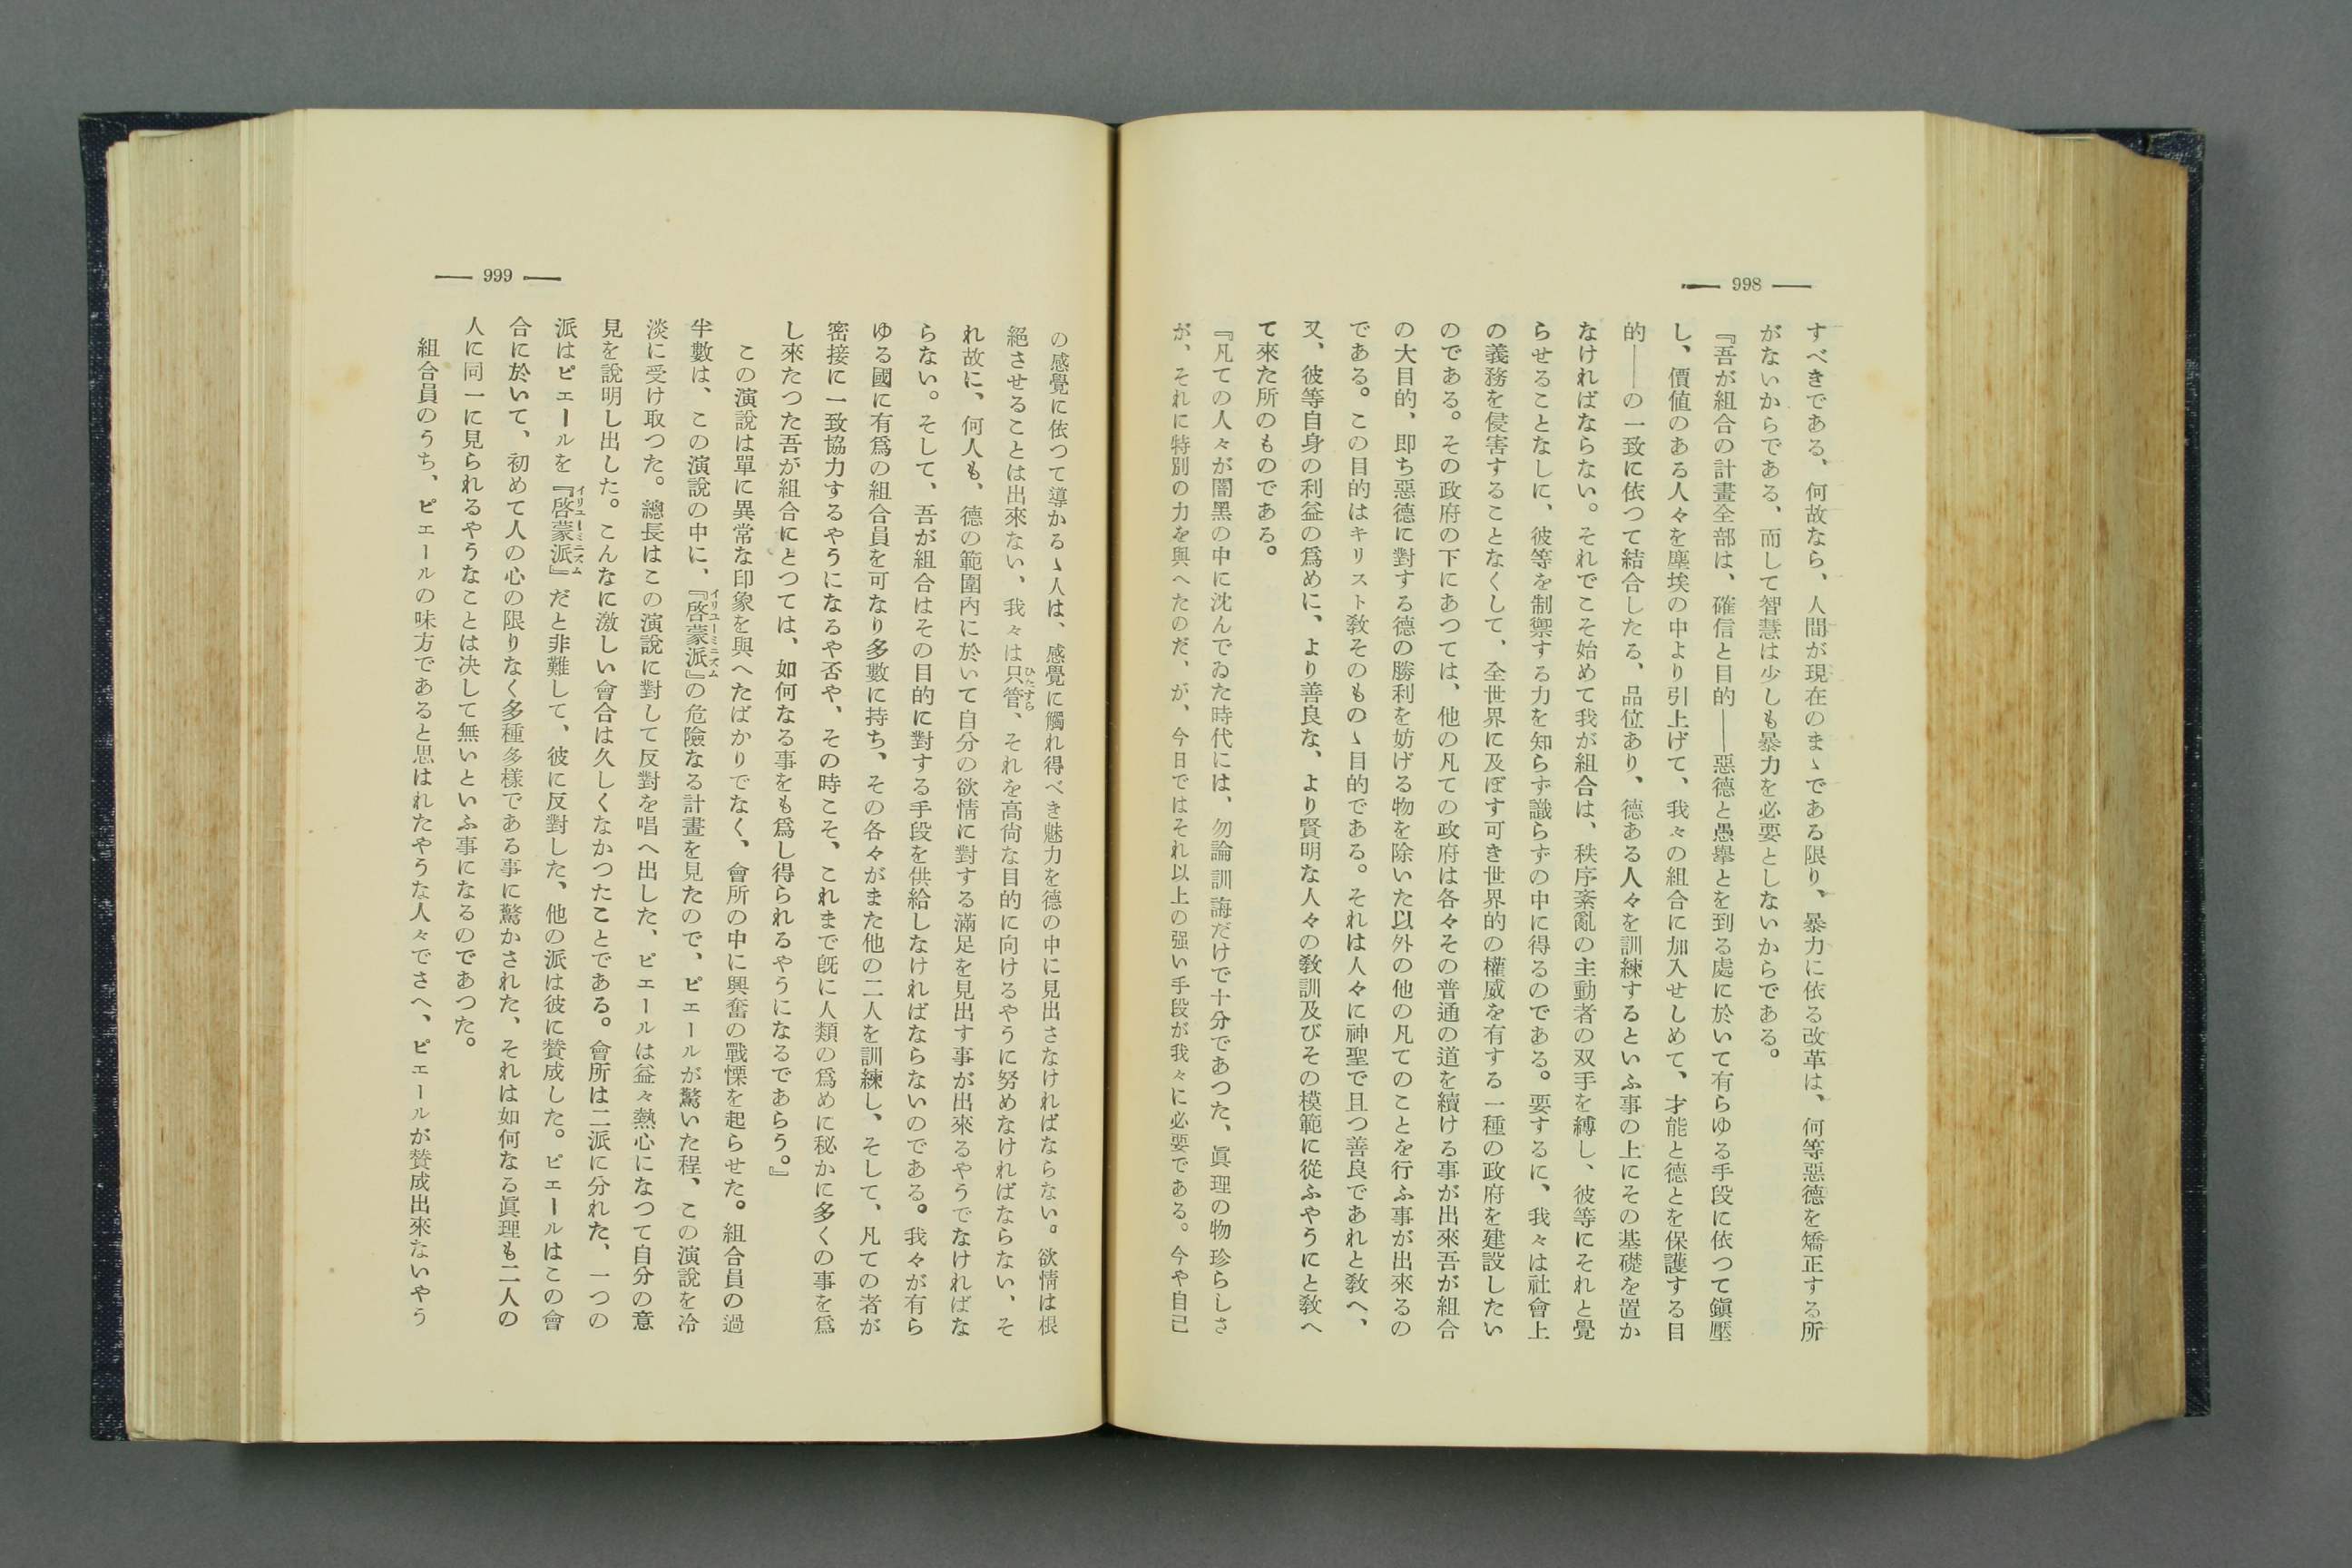 ― 998 ―
すべきである、何故なら、人間が現在のまゝである限り、暴力に依る改革は、何等惡德を矯正する所
がないからである、而して智慧は少しも暴力を必要としないからである。
『吾が組合の計畫全部は、確信と目的――惡德と愚擧とを到る處に於いて有らゆる手段に依つて鎭壓
し、價値のある人々を塵埃の中より引上げて、我々の組合に加入せしめて、才能と德とを保護する目
的――の一致に依つて結合したる、品位あり、德ある人々を訓練するといふ事の上にその基礎を置か
なければならない。それでこそ始めて我が組合は、秩序紊亂の主動者の双手を縛し、彼等にそれと覺
らせることなしに、彼等を制禦する力を知らず識らずの中に得るのである。要するに、我々は社會上
の義務を侵害することなくして、全世界に及ぼす可き世界的の權威を有する一種の政府を建設したい
のである。その政府の下にあつては、他の凡ての政府は各々その普通の道を續ける事が出來吾が組合
の大目的、即ち惡德に對する德の勝利を妨げる物を除いた以外の他の凡てのことを行ふ事が出來るの
である。この目的はキリスト敎そのものゝ目的である。それは人々に神聖で且つ善良であれと敎へ、
又、彼等自身の利益の爲めに、より善良な、より賢明な人々の敎訓及びその模範に從ふやうにと敎へ
て來た所のものである。
『凡ての人々が闇黑の中に沈んでゐた時代には、勿論訓誨だけで十分であつた、眞理の物珍らしさ
が、それに特別の力を與へたのだ、が、今日ではそれ以上の强い手段が我々に必要である。今や自己
― 999 ―
の感覺に依つて導かるゝ人は、感覺に觸れ得べき魅力を德の中に見出さなければならない。欲情は根
絕させることは出來ない、我々は只管ひたすら、それを高尙な目的に向けるやうに努めなければならない、そ
れ故に、何人も、德の範圍內に於いて自分の欲情に對する滿足を見出す事が出來るやうでなければな
らない。そして、吾が組合はその目的に對する手段を供給しなければならないのである。我々が有ら
ゆる國に有爲の組合員を可なり多數に持ち、その各々がまた他の二人を訓練し、そして、凡ての者が
密接に一致協力するやうになるや否や、その時こそ、これまで旣に人類の爲めに秘かに多くの事を爲
し來たつた吾が組合にとつては、如何なる事をも爲し得られるやうになるであらう。』
この演說は單に異常な印象を與へたばかりでなく、會所の中に興奮の戰慄を起らせた。組合員の過
半數は、この演說の中に、『啓蒙派イリユーミニズム』の危險なる計畫を見たので、ピエールが驚いた程、この演說を冷
淡に受け取つた。總長はこの演說に對して反對を唱へ出した、ピエールは益々熱心になつて自分の意
見を說明し出した。こんなに激しい會合は久しくなかつたことである。會所は二派に分れた、一つの
派はピエールを『啓蒙派イリユーミニズム』だと非難して、彼に反對した、他の派は彼に贊成した。ピエールはこの會
合に於いて、初めて人の心の限りなく多種多樣である事に驚かされた、それは如何なる眞理も二人の
人に同一に見られるやうなことは决して無いといふ事になるのであつた。
組合員のうち、ピエールの味方であると思はれたやうな人々でさへ、ピエールが贊成出來ないやう